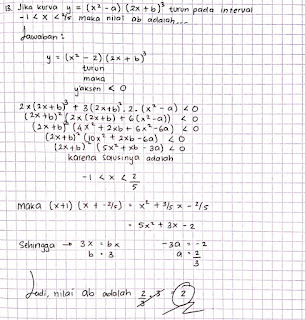 13. Jika kurva y = (x² - a) (2x + b)³ turun pada interval
-1 < x < 2/5 maka nilai ab adalah....
Jawaban :
y = (x² - 2) (2x + b)³
turun
maka
y'aksen < 0
2x(2x+b)³ + 3(2x+b)². 2. (x² - a) < 0
(2x + b)² (2x(2x+b) + 6(x² - a)) < 0
(2x + b)² (4x² + 2xb + 6x² - 6a) < 0
(2x + b)² (10x² + 2xb - 6a) < 0
(2x + b)² (5x² + xb - 3a) < 0
karena solusinya adalah
-1 < x < 2/5
maka (x+1) (x - 2/5) = x² + 3/5 x - 2/5
= 5x² + 3x - 2
Sehingga → 3x = bx -3a = -2
b = 3 a = 2/3
Jadi, nilai ab adalah 2/3 . 3 = 2